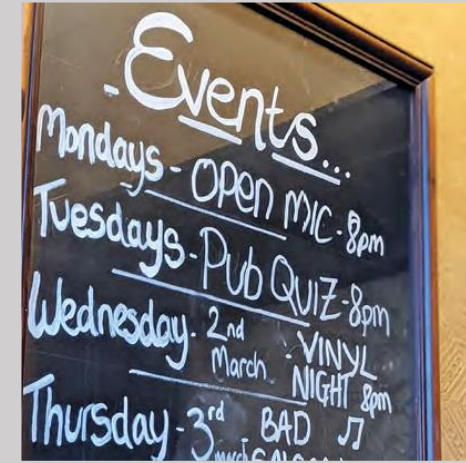 Events...
Mondays - OPEN MIC - 8pm
Tuesdays - Pub QUIZ - 8pm
Wednesday. 2nd March. VINYL NIGHT 8pm
Thursday - 3rd BAD ♫